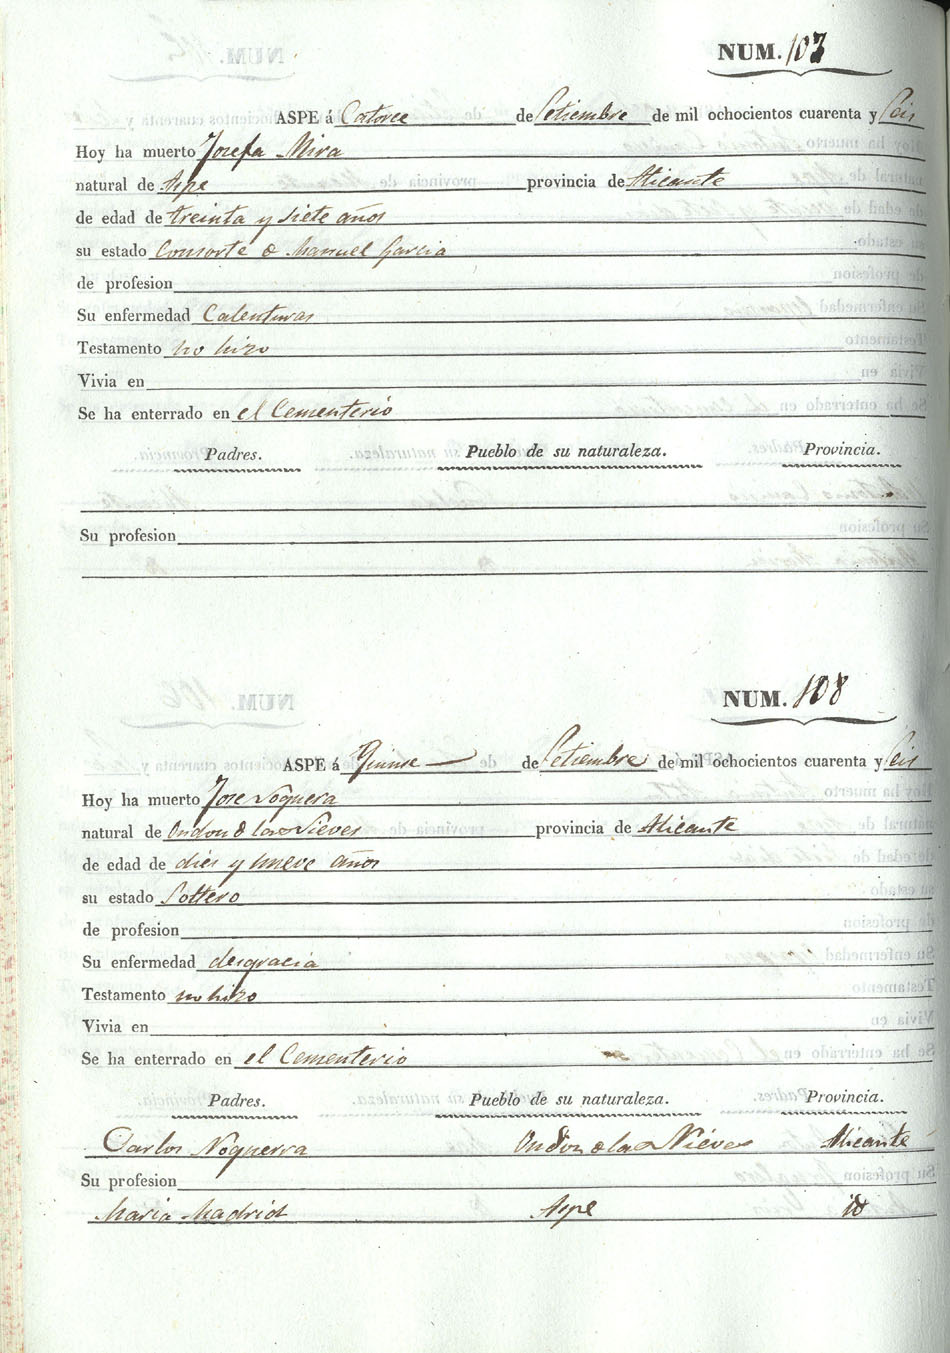 NUM. 107
ASPE á Catorce de Setiembre de mil ochocientos cuarenta y Seis
Hoy ha muerto Josefa Mira
natural de Aspe provincia de Alicante
de edad de treinta y siete años
su estado Consorte de Manuel Garcia
de profesion
Su enfermedad Calenturas
Testamento no hizo
Vivia en
Se ha enterrado en el Cementerio
Padres. Pueblo de su naturaleza. Provincia.
Su profesion
NUM. 108
ASPE á Quinse de Setiembre de mil ochocientos cuarenta y Seis
Hoy ha muerto Jose Noguera
natural de Ondon de las Nieves provincia de Alicante
de edad de dies y nueve años
su estado Soltero
de profesion
Su enfermedad desgracia
Testamento no hizo
Vivia en
Se ha enterrado en el Cementerio
Padres. Pueblo de su naturaleza. Provincia.
Carlos Noguerra Ondon de las Nieves Alicante
Su profesion
Maria Madrid Aspe id